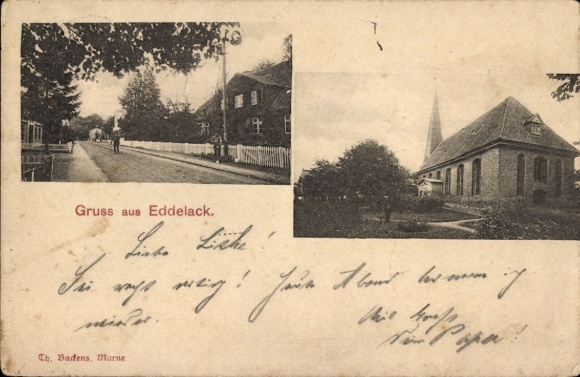 Gruss aus Eddelack.
Liebe Liske!
Sei recht artig! Heute Abend komm ich
wieder.
Viel Grüße
Dein Papa!
Th. Backens, Marne.